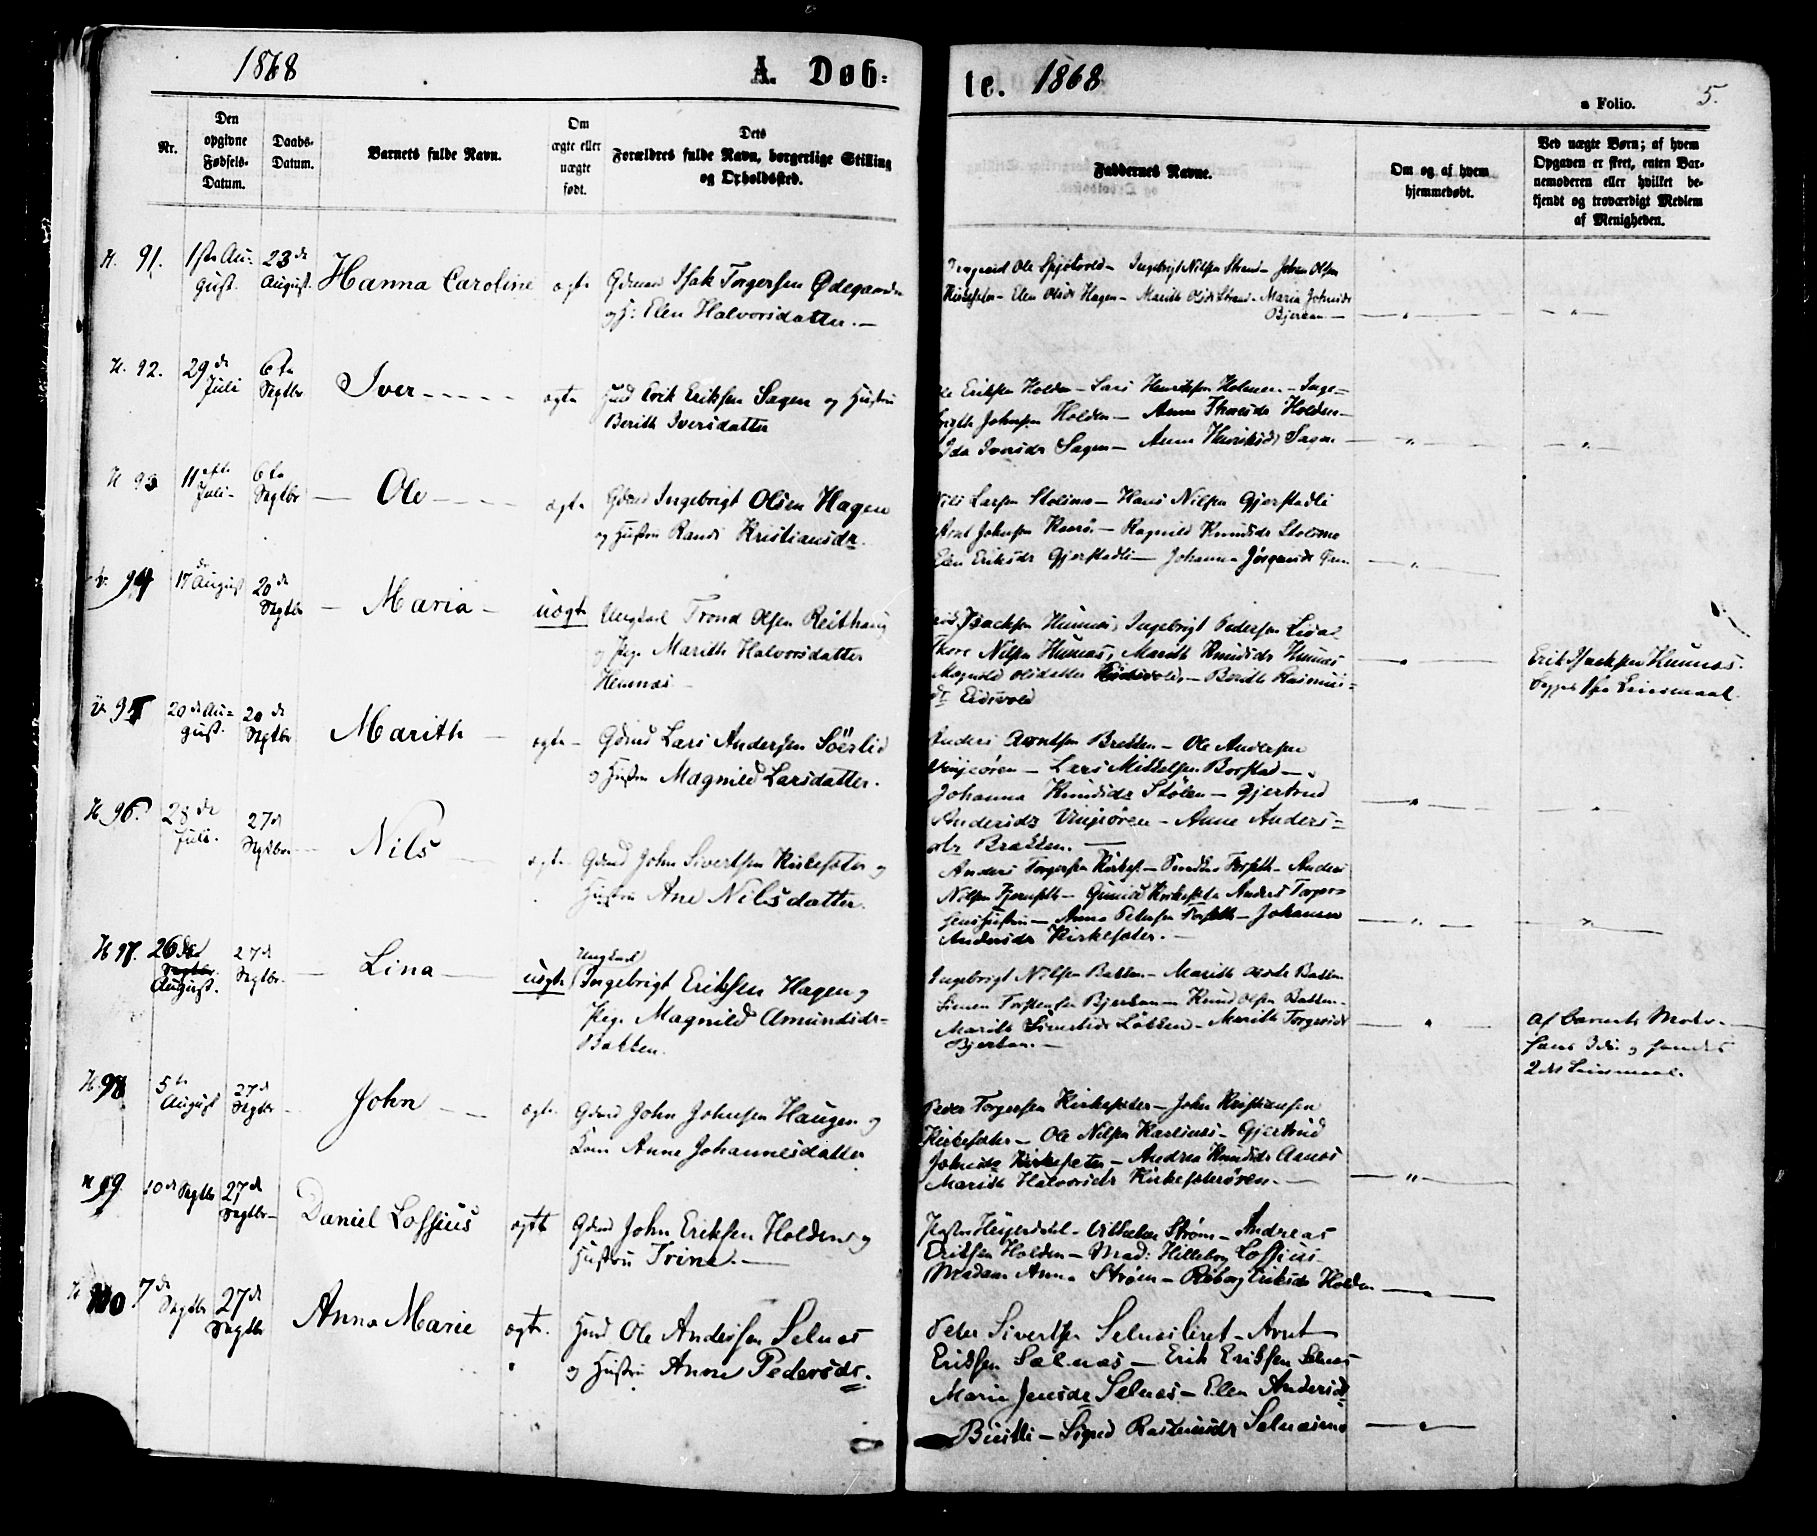 1868
A. Døb-
te. 1868
a Folio. 5.
Nr.
Den opgivne Fødsels-Datum.
Daabs-Datum.
Barnets fulde Navn.
Om ægte eller uægte født.
Dets Forældres fulde Navn, borgerlige Stilling og Opholdssted.
Faddernes Navne.
Om og af hvem hjemmedøbt.
Ved uægte Børn; af hvem Opgaven er skeet, enten Barnemoderen eller hvilket bekjendt og troværdigt Medlem af Menigheden.
H. 91. 1ste August. 23de August. Hanna Caroline ægte Gdmd Isak Torgersen Ødegaarden
og H: Elen Halvorsdatter.
Ole Spjøtvold – Ingebrigt Nilsen Strand – Johan Olsen
Kirksæter – Elen Olsdr Hagen – Marith Olsdr Strand – Maria Johnsdr
Bjerkan
H. 92. 29de Juli 6te Septbr Iver ægte Husmd Erik Eriksen Sagen og Hustru
Berith Iversdatter
Ole Eriksen Holden – Lars Henriksen Holmen – Inge-
brigt Johnsen Holden – Anne Thoresdr Holden –
Ida Iversdr Sagen – Anne Henriksdr Sagen
H 93 11efte Juli 6te Septbr Ole ægte Gdmd Ingebrigt Olsen Hagen
og Hustru Randi Kristiansdr.
Nils Larsen Stolsmo – Hans Nilsen Gjerstadli
Arnt Johnsen – Ragnild Knudsdr Stolsmo
Elen Eriksdr Gjerstadli – Johanna Jørgensdr
V. 94 17de August 20de Septbr Maria uægte Ungkarl Trond Olsen Reithaug
og Pige Marith Halvorsdatter
Hemnæs
Erik Isachsen Humnæs, Ingebrigt Pedersen
Thore Nilsen Humnæs, Marith Knudsdr Humnæs
Magnild Olsdatter Eidsvold – Berith Rasmus-
dr Eidsvold
Erik Isachsen Humnæs.
begges 1ste Leiermaal.
V. 95 20de August. 20de Septbr Marith ægte Gdmd Lars Andersen Söeslid
og Hustru Magnild Larsdatter.
Anders Arntsen Brekken – Ole Andersen
Vinjeøren – Lars Mikkelsen Borstad –
Johanna Knudsdr Stølen – Gjertrud
Andersdr Vinjeøren – Anne Anders-
dtr Brekken.
H. 96. 28de Juli. 27de Septbr Nils ægte Gdmd John Sivertsen Kirksæter og
Hustru Ane Nilsdatter.
Anders Torgersen Kirkes. – Forseth – Anders
Nilsen – Gunild Kirksæter Anders Torger-
sens Hustru – Anna Petersen Forseth – Johanna
Andersdr Kirkesæter.
H 97. 26de Septbr August. 27de Septbr. Lina uægte Ungkarl
Ingebrigt Eriksen Hagen og
Pige Magnild Amundsdr
Bakken.
Ingebrigt Nilsen Bakken – Marith Olsdr Bakken
Simen Torstensen Bjerkan – Knud Olsen Bakken –
Marith Sivertsdr Løkken – Marith Torgersdr
Bjerkan.
Af barnets Moder –
hans 3die og hendes
2det Leiermaal.
H. 98 5te August 27de Septbr John ægte Gdmd John Johnsen Haugen og
Kone Anne Johannesdatter
Peder Torgersen Kirkesæter – John Kristiansen
Kirkesæter – Ole Nilsen Karlsnes – Gjertrud
Johnsdr Kirkesæter – Andrea Knudsdr Aanes
Marith Halvorsdr Kirkesæterøren.
H 99. 10de Septbr 27de Septbr Daniel Lossius ægte Gdmd John Eriksen Holden og
Hustru Trine.
Presten Heyerdahl – Vilhelm Strøm – Andreas
Eriksen Holden – Mad: Hilleborg Lossius
Madam Anna Strøm – Røborg Eriksdr Holden
H 100 7de Septbr 27de Septbr Anna Marie ægte Husmd Ole Andersen Selnes
og Hustru Anne Pedersdr.
Peter Sivertsen Selnæs – Arnt
Eriksen Selnæs – Erik Eriksen Selnæs
Marie Jensdr Selnæs – Elen Andersdr
– Signed Rasmusdr Selnæsmo